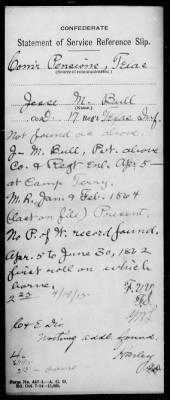 CONFEDERATE
Statement of Service Reference Slip.
Com'r Pensions, Texas
(Source of communication.)
Jesse M. Bull
(Name.)
Co. D. 17 Reg't Texas Inf.
Not found as above.
J— M. Bull, Pvt. above
Co. & Regt Enl. Apr. 5—
at Camp Terry.
M.R. Jan. & Feb. 1864
(last on file) Present.
No P. of W. record found.
Apr. 5 to June 30, 1862
first roll on which
borne.
Nothing addl. found.
Harley
Form No. 447-1—A. G. O.